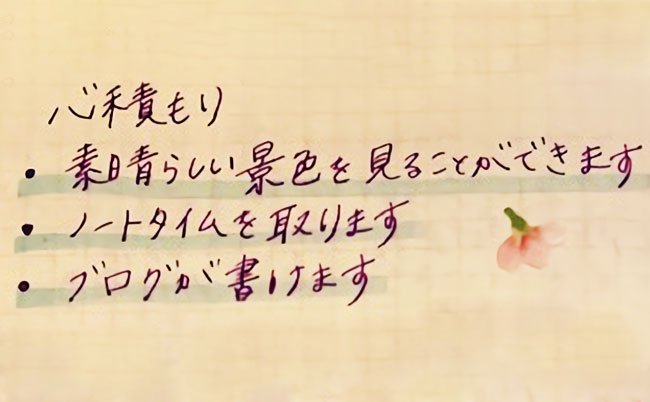 心積もり
・素晴らしい景色を見ることができます
・ノートタイムを取ります
・ブログが書けます